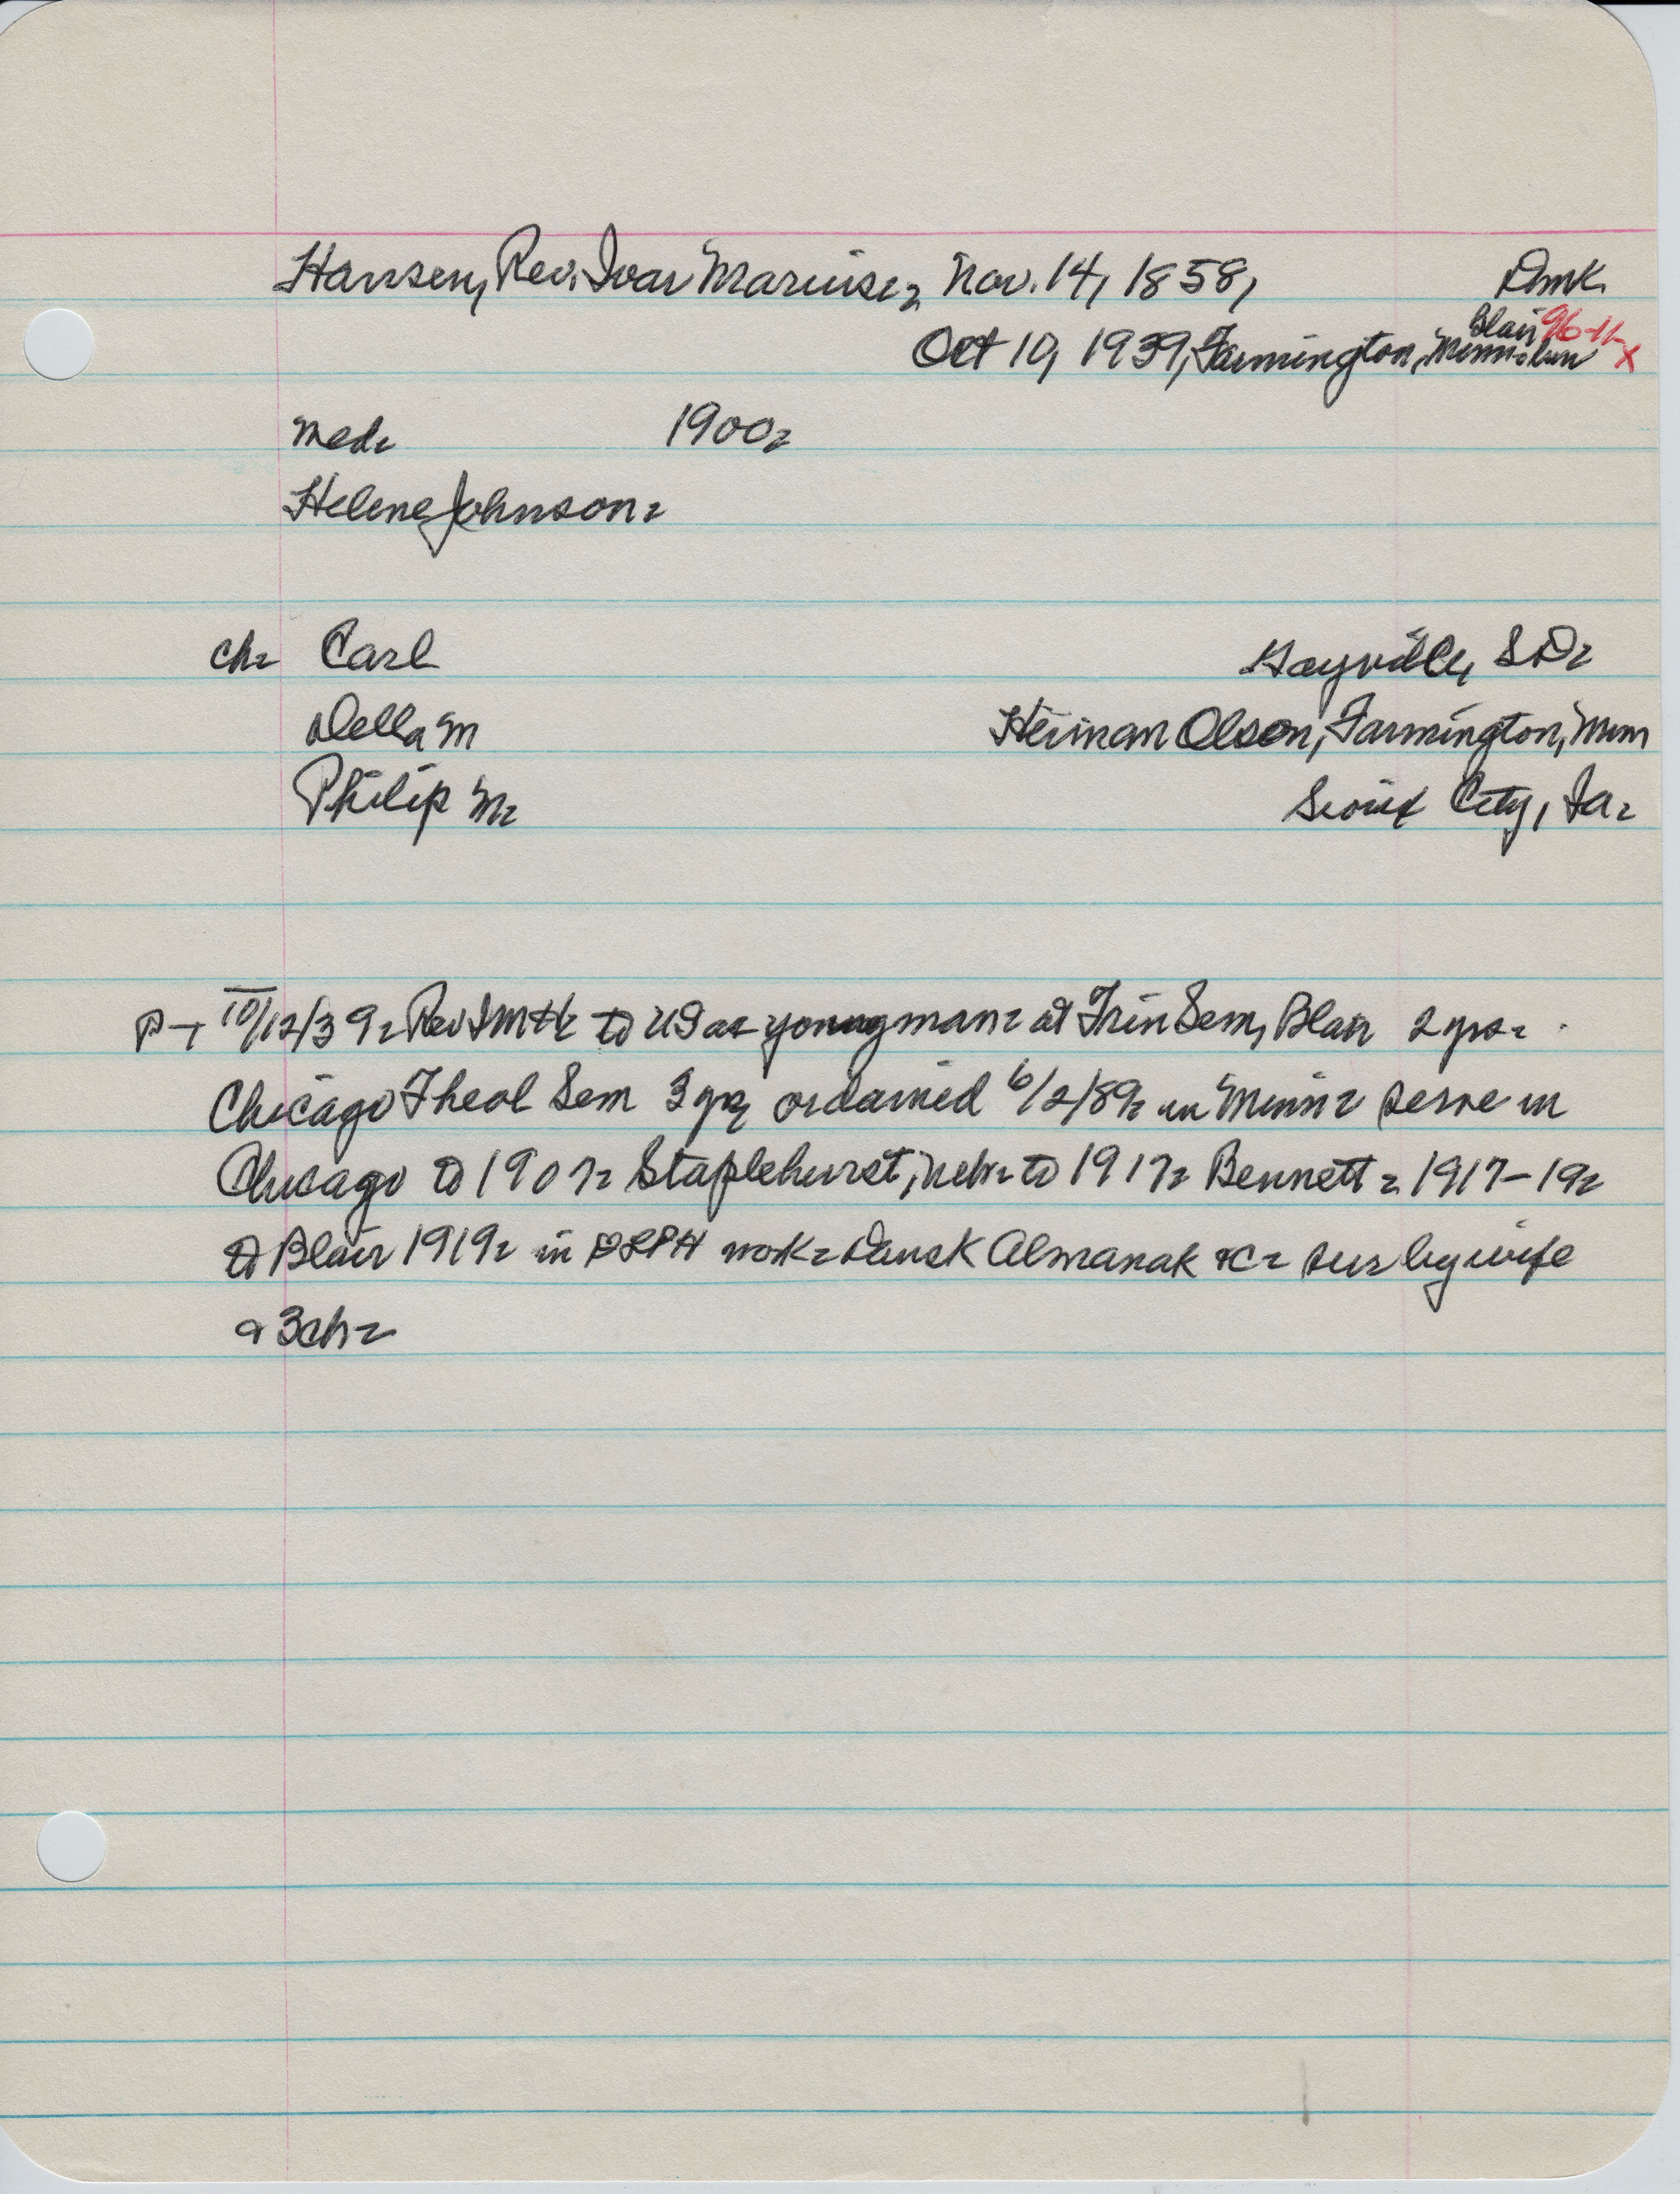 Hansen, Rev. Ivar Marius. Nov. 14, 1858, Dmk.
Blair 96-11-x
Oct 10, 1939, Farmington, Minn. bur
med. 1900.
Helene Johnson.
ch. Carl Gayville, S.D.
Della M Herman Olson, Farmington, Minn
Philip M. Sioux City, Ia.
P-T 10/12/39. Rev IMH. to US as young man. at Trin Sem, Blair 2 yrs.
Chicago Theol Sem 3 yrs, ordained 6/2/89. in Minn. serve in
Chicago to 1907. Staplehurst, Neb. to 1917. Bennett. 1917-19.
to Blair 1919. in DLPH work. Dansk Almanak &c. sur by wife
& 3 ch.